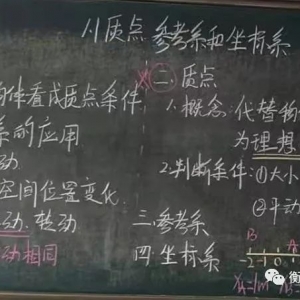 1.1质点 参考系和坐标系
体看成质点条件
系的应用
动
空间位置变化.
动.转动
动相同
二.质点
1.概念:代替物
为理想
2.判断条件:①大小
②平动
三.参考系
四.坐标系
B A
-2 -1 0
衡